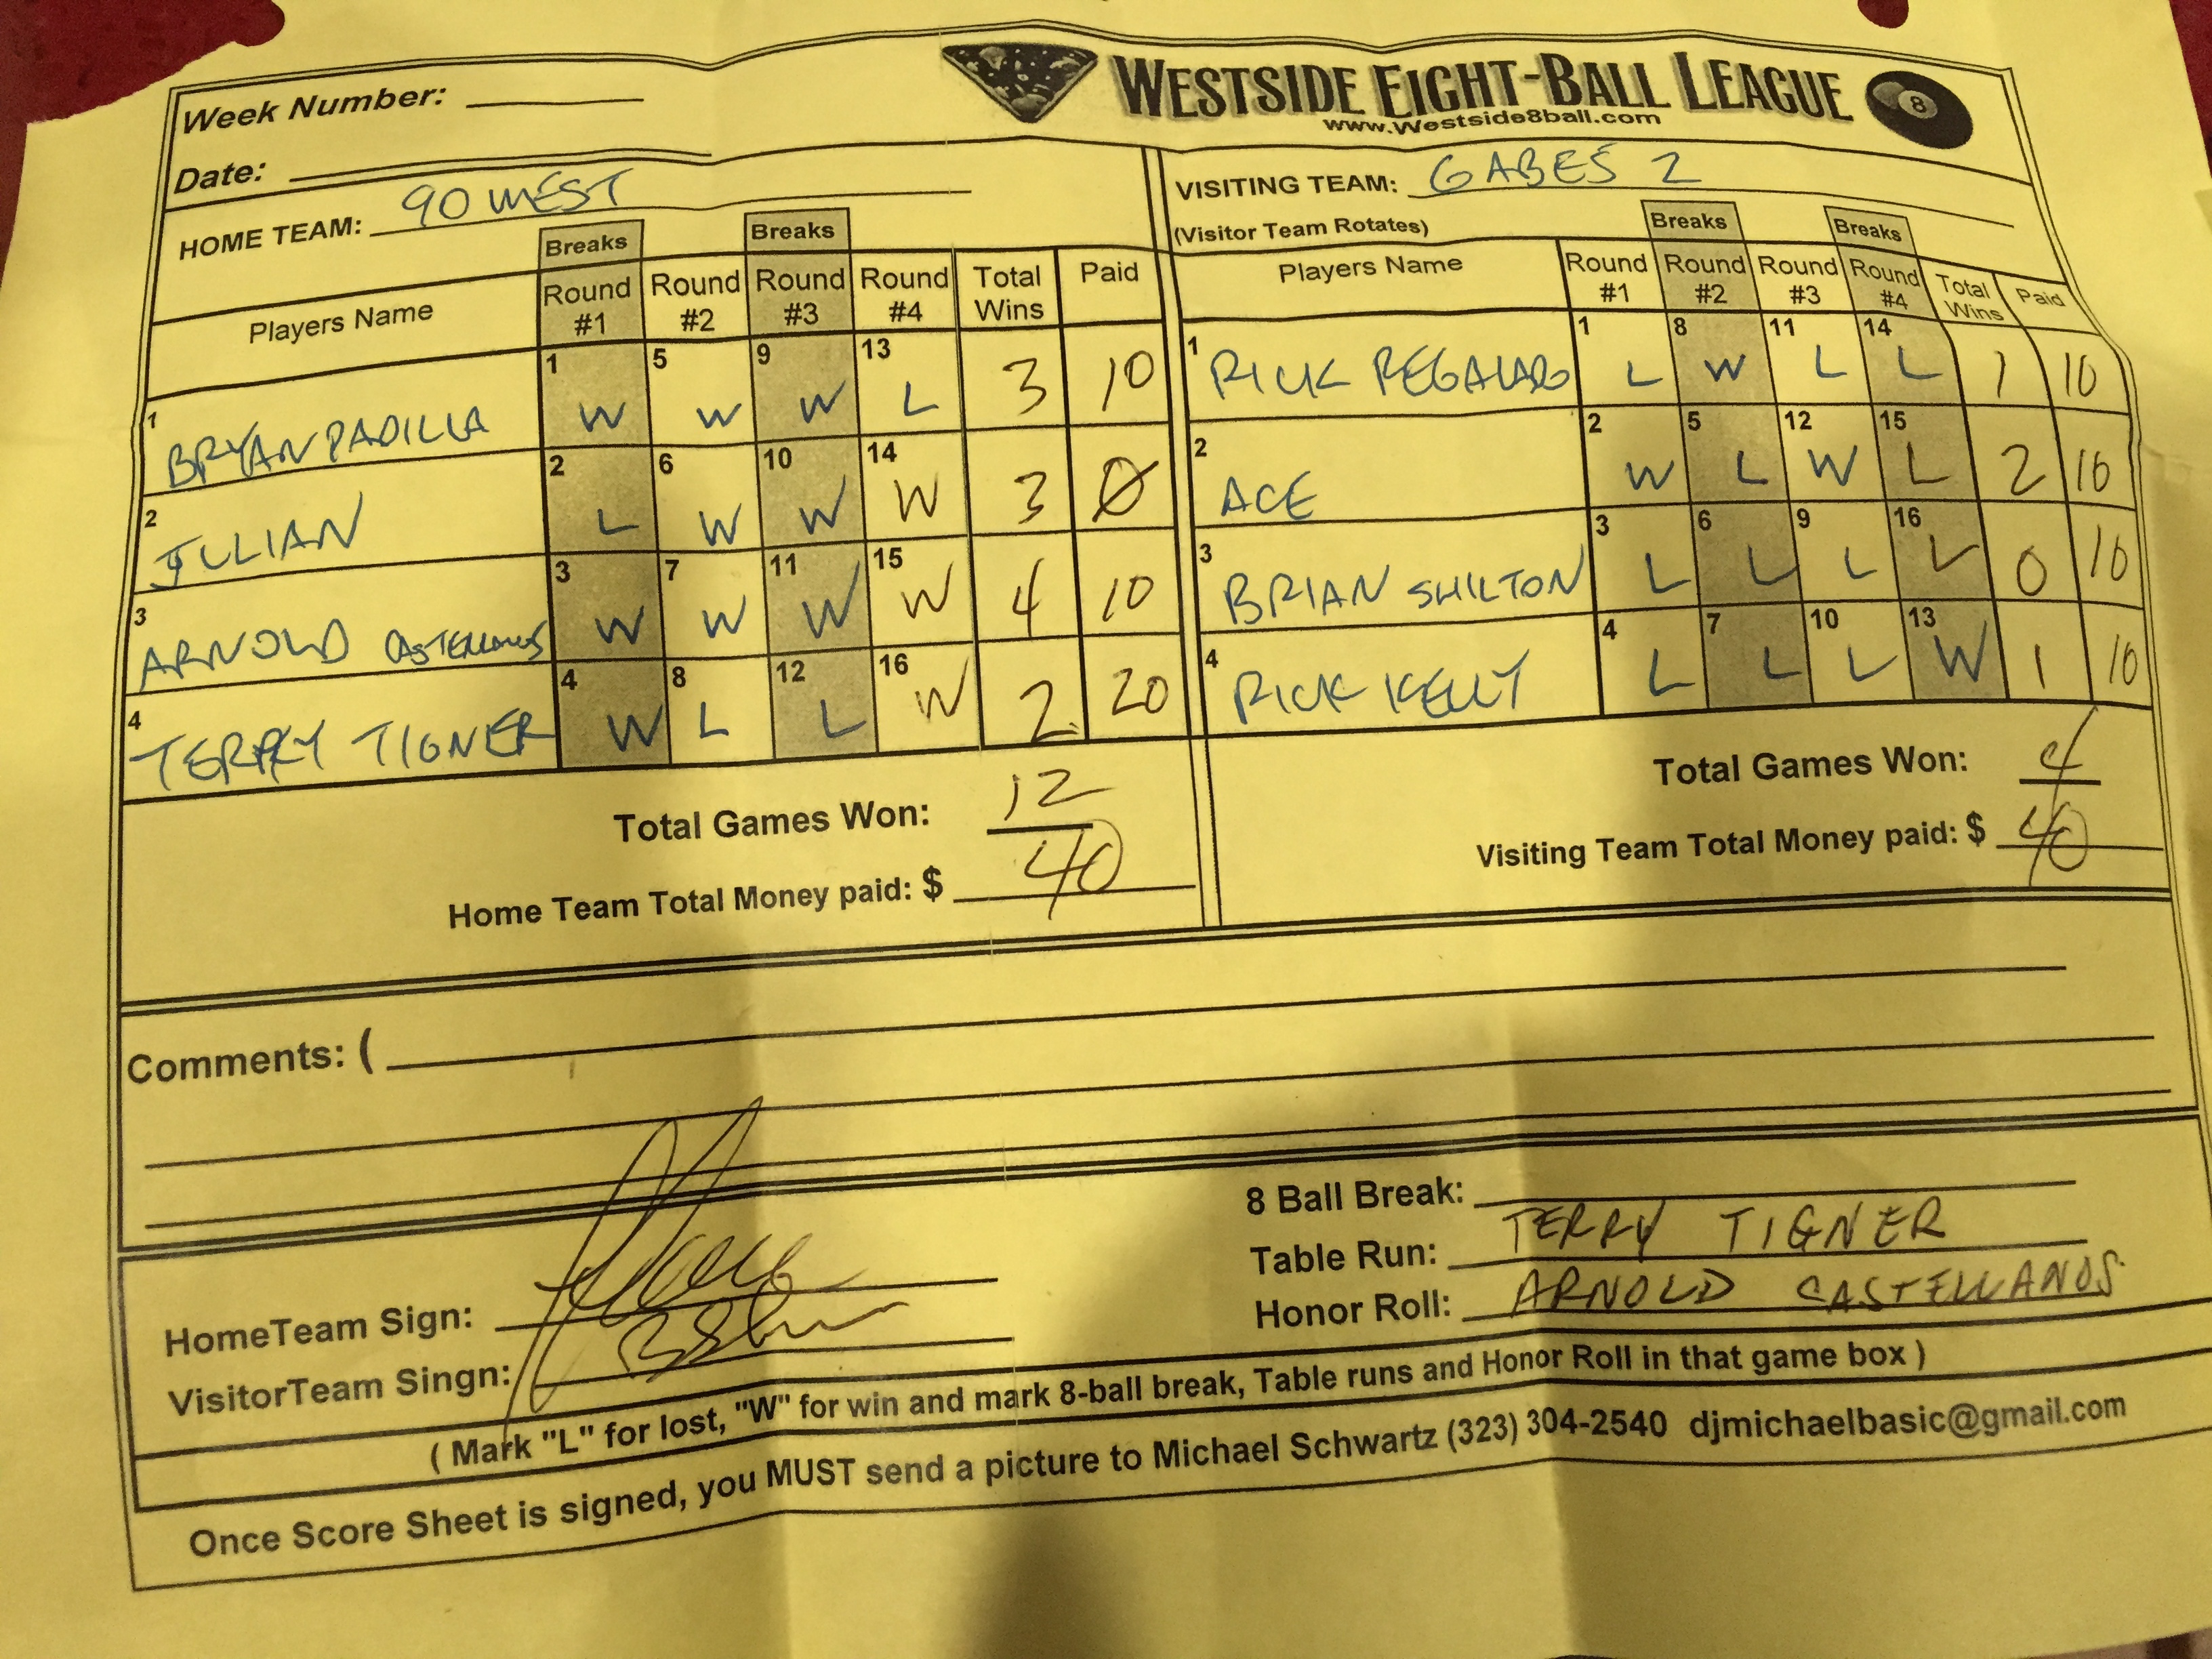 Week Number:
WESTSIDE EIGHT-BALL LEAGUE
8
www.Westside8ball.com
Date:
HOME TEAM: 90 WEST
VISITING TEAM: GABES 2
(Visitor Team Rotates)
Breaks Breaks
Players Name Round #1 Round #2 Round #3 Round #4 Total Wins Paid
1 BRYAN PADILLA 1 W 5 W 9 W 13 L 3 10
2 JULIAN 2 L 6 W 10 W 14 W 3 0
3 ARNOLD CASTELLANOS 3 W 7 W 11 W 15 W 4 10
4 TERRY TIGNER 4 W 8 L 12 L 16 W 2 20
Total Games Won: 12
Home Team Total Money paid: $ 40
Breaks Breaks
Players Name Round #1 Round #2 Round #3 Round #4 Total Wins Paid
1 RICK REGALADO 1 L 8 W 11 L 14 L 1 10
2 ACE 2 W 5 L 12 W 15 L 2 10
3 BRIAN SHILTON 3 L 6 L 9 L 16 L 0 10
4 RICK KELLY 4 L 7 L 10 L 13 W 1 10
Total Games Won: 4
Visiting Team Total Money paid: $ 40
Comments: (
8 Ball Break:
Table Run: TERRY TIGNER
Honor Roll: ARNOLD CASTELLANOS
HomeTeam Sign:
VisitorTeam Singn:
( Mark "L" for lost, "W" for win and mark 8-ball break, Table runs and Honor Roll in that game box )
Once Score Sheet is signed, you MUST send a picture to Michael Schwartz (323) 304-2540 djmichaelbasic@gmail.com